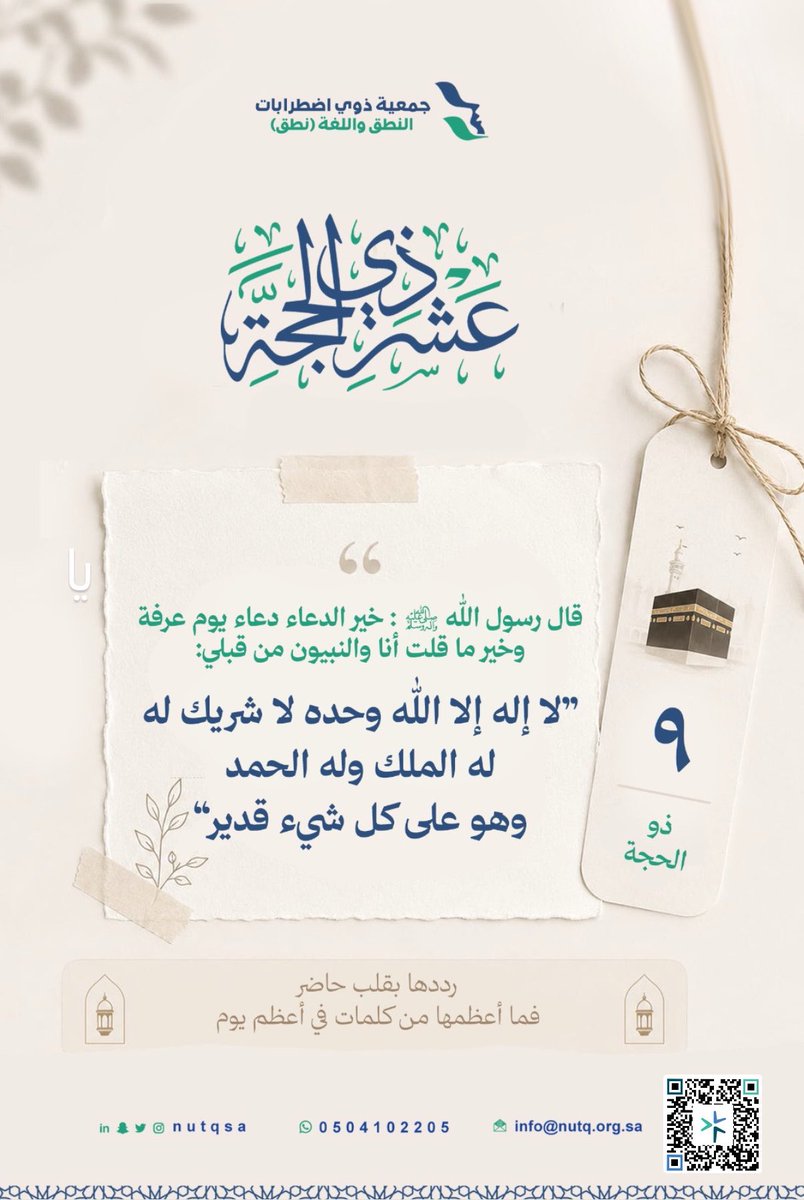 جمعية ذوي اضطرابات
النطق واللغة (نطق)
عَشْرَ ذي الحجَّةِ
يا
قال رسول الله ﷺ : خير الدعاء دعاء يوم عرفة
وخير ما قلت أنا والنبيون من قبلي:
”لا إله إلا الله وحده لا شريك له
له الملك وله الحمد
وهو على كل شيء قدير“
٩
ذو
الحجة
رددها بقلب حاضر
فما أعظمها من كلمات في أعظم يوم
nutqsa
0504102205
info@nutq.org.sa